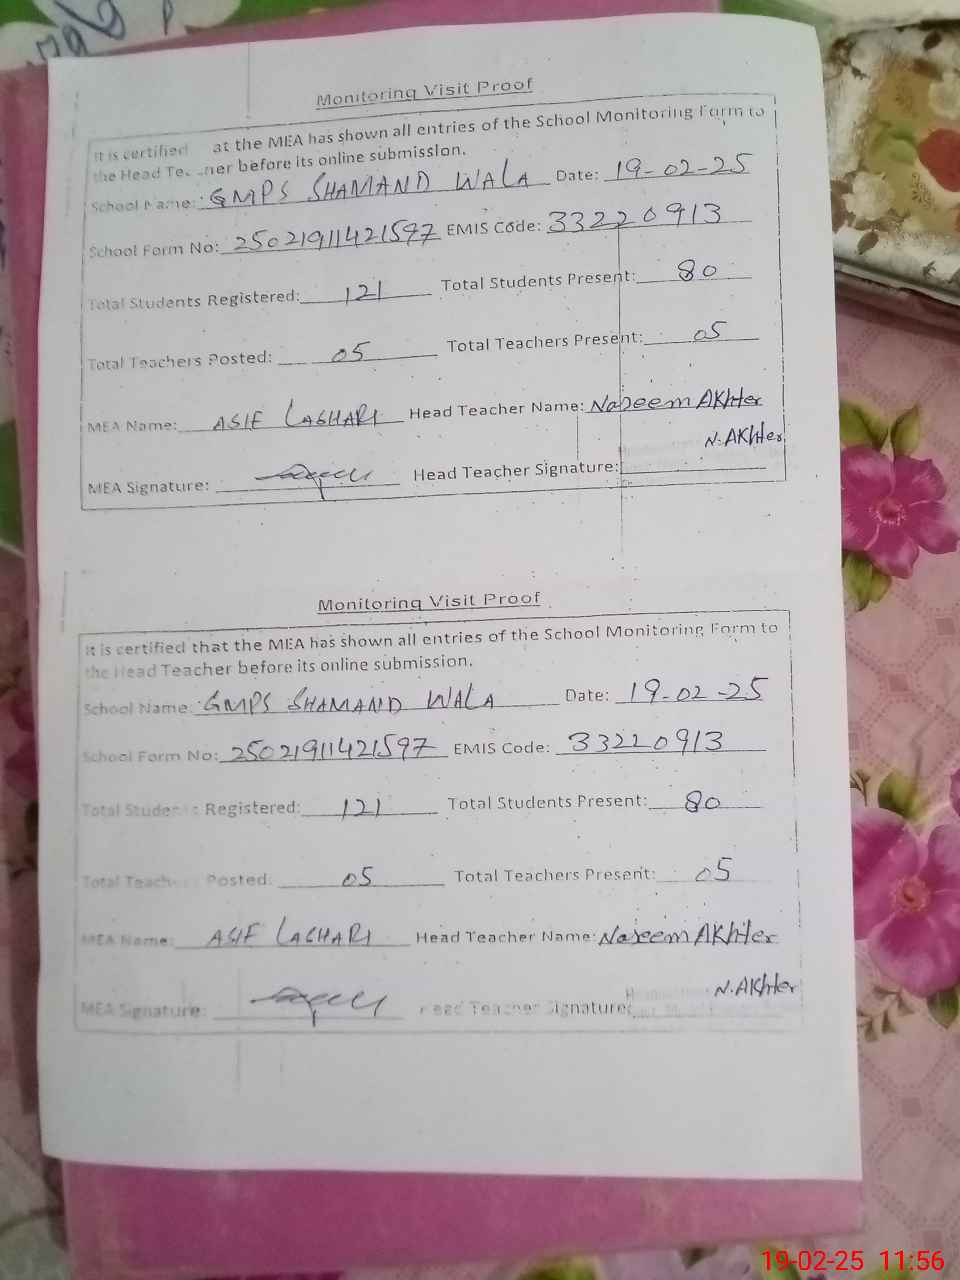 Monitoring Visit Proof
It is certified at the MEA has shown all entries of the School Monitoring Form to
the Head Te. ner before its online submission.
School Name: GMPS SHAMAND WALA Date: 19-02-25
School Form No: 25021911421597 EMIS Code: 33220913
Total Students Registered: 121 Total Students Present: 80
Total Teachers Posted: 05 Total Teachers Present: 05
MEA Name: ASIF LAGHARI Head Teacher Name: Naseem AKhter
N. AKhter
MEA Signature: Head Teacher Signature:
Monitoring Visit Proof
It is certified that the MEA has shown all entries of the School Monitoring Form to
the Head Teacher before its online submission.
School Name: GMPS SHAMAND WALA Date: 19-02-25
School Form No: 25021911421597 EMIS Code: 33220913
Total Students Registered: 121 Total Students Present: 80
Total Teachers Posted: 05 Total Teachers Present: 05
MEA Name: ASIF LAGHARI Head Teacher Name: Naseem AKhter
N. AKhter
MEA Signature: Head Teacher Signature:
19-02-25 11:56